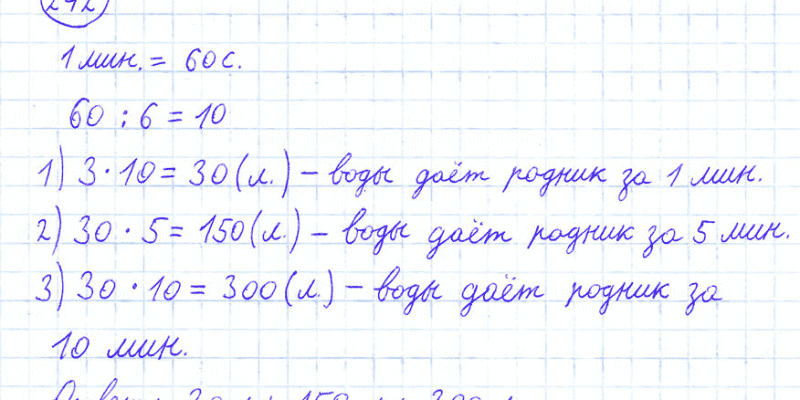 1 мин. = 60 с.
60 : 6 = 10
1) 3 · 10 = 30 (л.) – воды даёт родник за 1 мин.
2) 30 · 5 = 150 (л.) – воды даёт родник за 5 мин.
3) 30 · 10 = 300 (л.) – воды даёт родник за
10 мин.